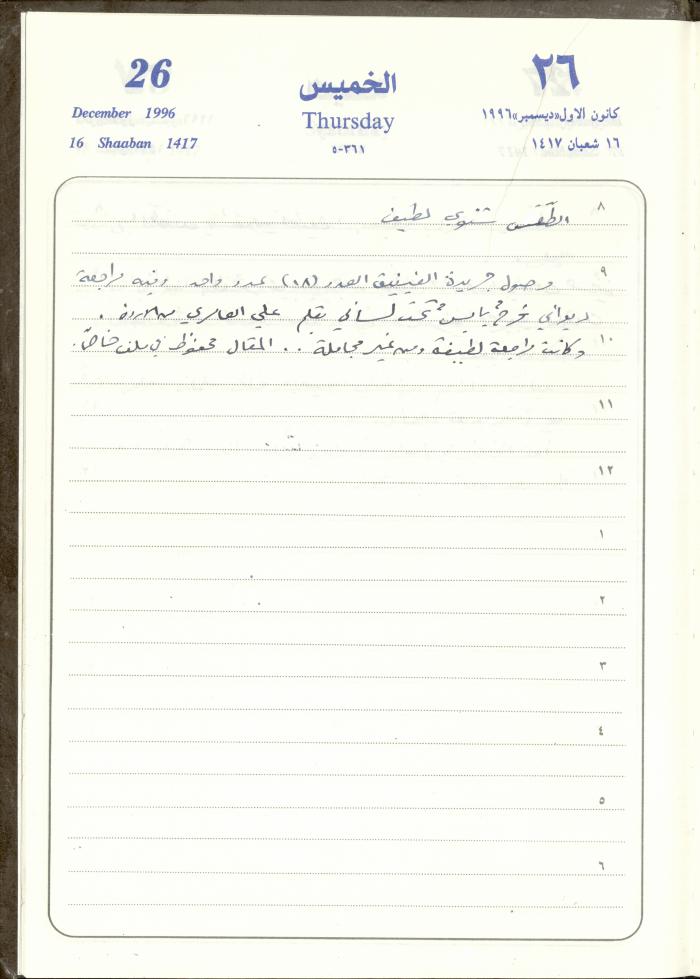 26
December 1996
16 Shaaban 1417
الخميس
Thursday
٥-٣٦١
٢٦
كانون الاول «ديسمبر» ١٩٩٦
١٦ شعبان ١٤١٧
٨ الطقس شتوي لطيف
٩ وصول جريدة الفينيق العدد (١٨) عدد واحد وفيه مراجعة
ديواني تحت لساني بقلم علي العامري .
١٠ وكانت مراجعة لطيفة ومن غير مجاملة .. المقال محفوظ في ملف خاصّ.
١١
١٢
١
٢
٣
٤
٥
٦